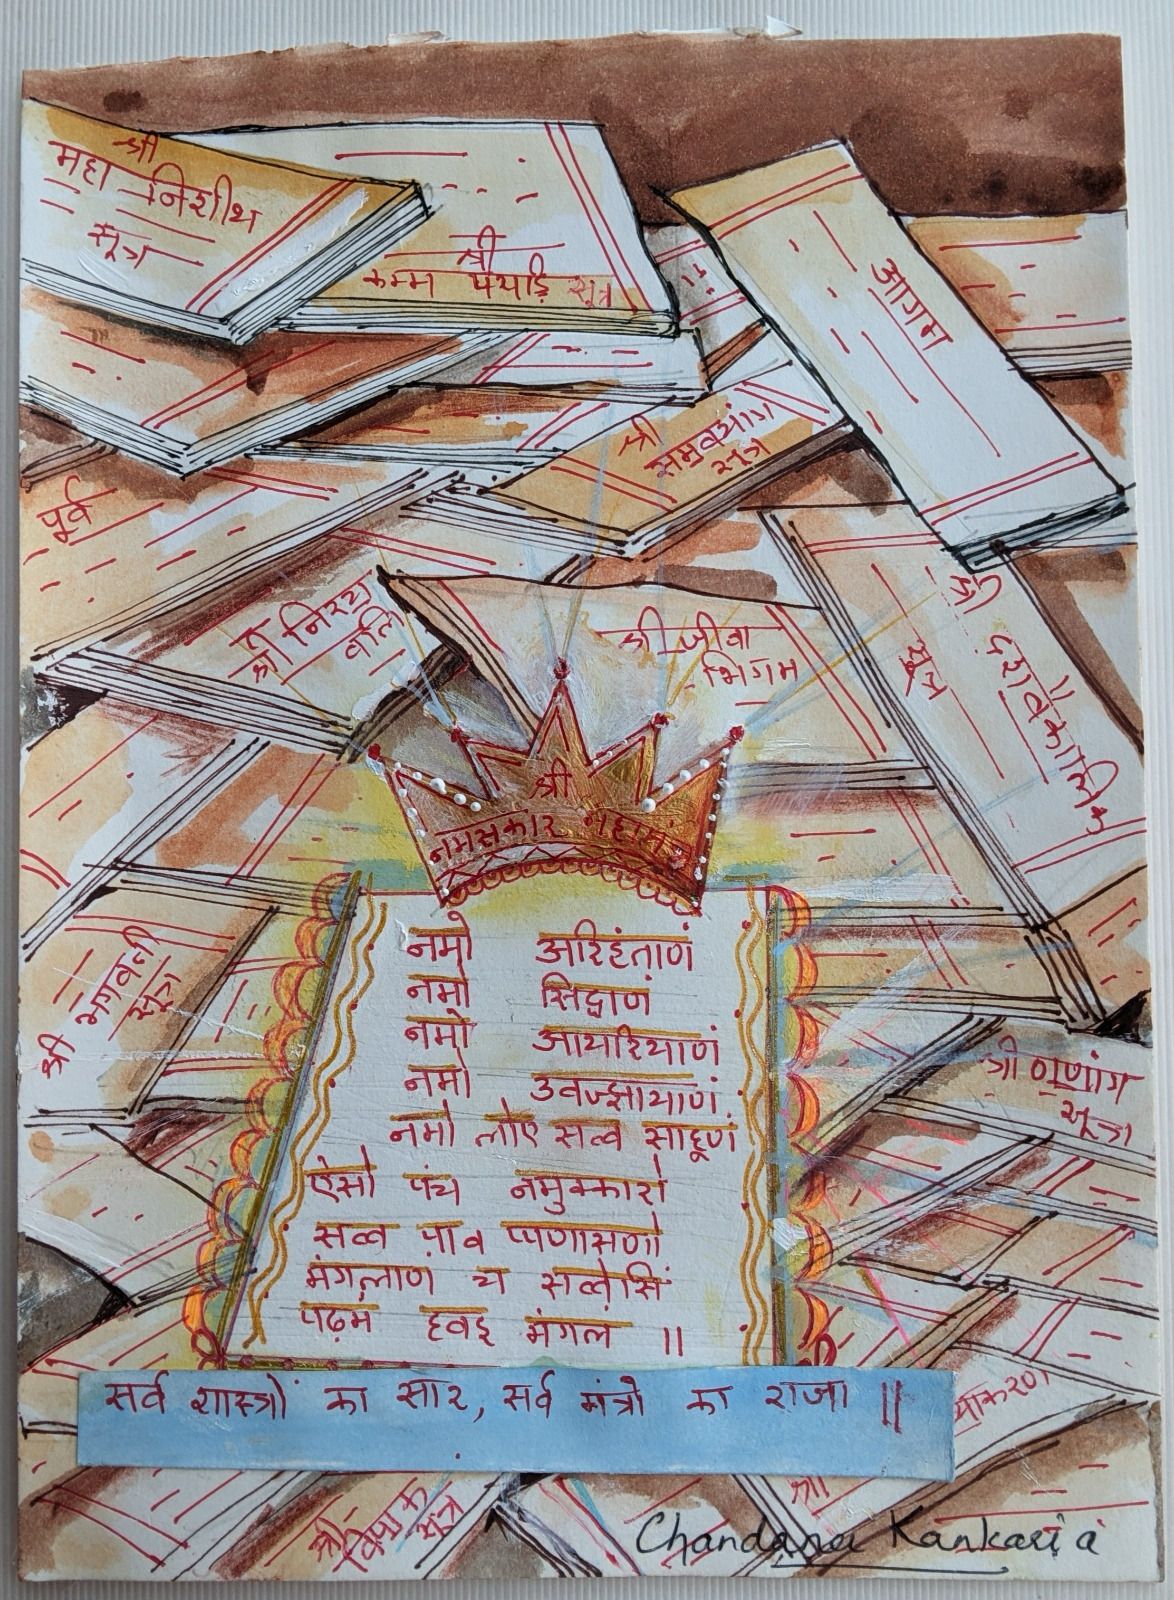 श्री
महा निशीथ
सूत्र
श्री
कम्म पयडि सूत्र
आगम
श्री
समुवयांग
सूत्र
पूर्व
श्री निरया
वलि
श्री जीवा
भिगम
श्री दशवैकालिक
सूत्र
श्री
नमस्कार महामंत्र
नमो अरिहंताणं
नमो सिद्धाणं
नमो आयरियाणं
नमो उवज्झायाणं
नमो लोए सव्व साहूणं
ऐसो पंच नमुक्कारो
सव्व पाव प्पणासणो
मंगलाणं च सव्वेसिं
पढ़मं हवइ मंगलं ॥
श्री भगवती
सूत्र
श्री ठाणांग
सूत्र
सर्व शास्त्रों का सार, सर्व मंत्रो का राजा ॥
श्री
व्याकरण
श्री विपाक
सूत्र
Chandana Kankaria